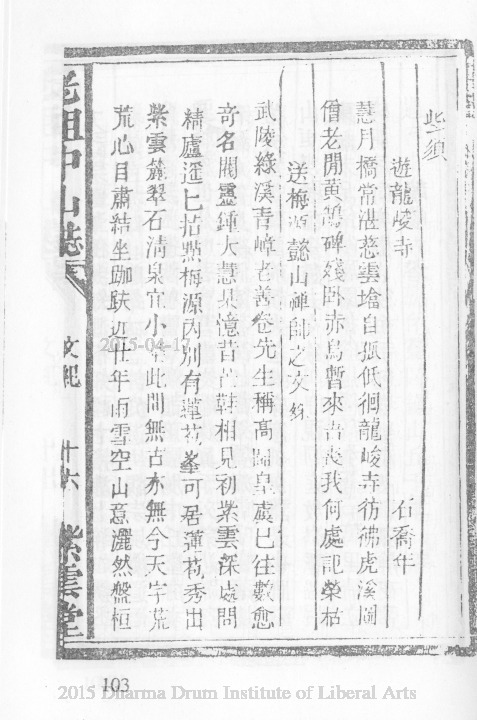 些須
遊龍峻寺 石喬年
慧月橋常湛慈雲墖自孤低徊龍峻寺彷彿虎溪圖
僧老閒黄鵠碑殘臥赤烏暫來吾喪我何處記榮枯
送梅源懿山禪師之文
武陵綠溪青嶂老善卷先生稱高闢皇虞已往數愈
奇名閥靈鍾大慧某憶昔芒鞋相見初紫雲深處問
精廬遥 拈㸃梅源内別有蓮花峯可居蓮花秀出
紫雲巔翠石清泉宜小 此間無古亦無今天宇荒
荒心目肅結坐跏趺近廿年雨雪空山意灑然盤桓
老祖中山誌
文紀 十六 紫雲堂
2015-04-17
103
2015 Dharma Drum Institute of Liberal Arts